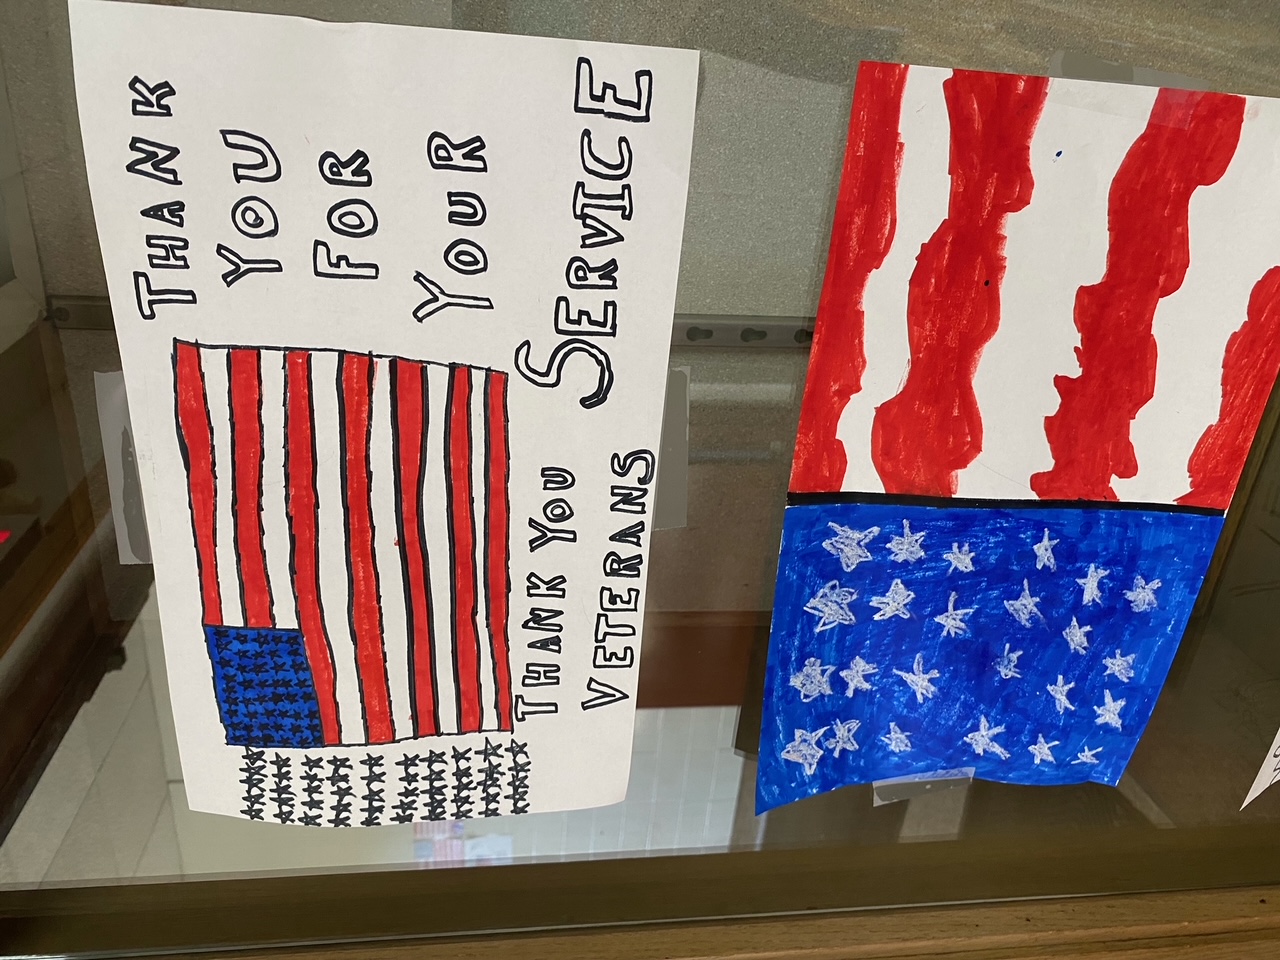 THANK
YOU
FOR
YOUR
SERVICE
THANK YOU
VETERANS